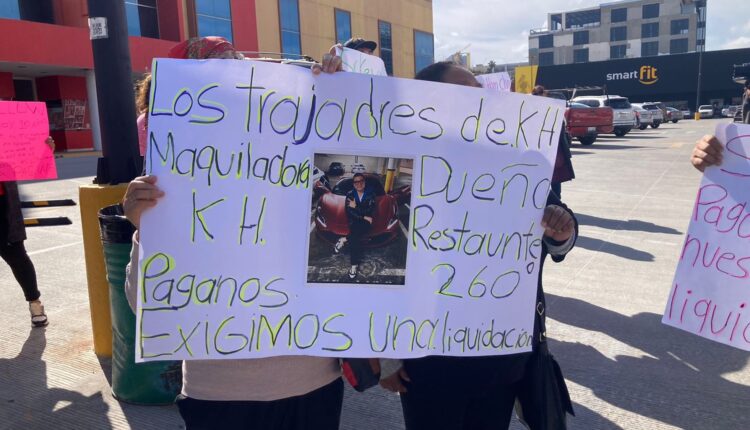 Los trajadores de.K H
Maquiladora
K H.
Dueño
Restaunte
260
Paganos.
Exigimos una liquidación
smart fit
S
Paga
nues
liquid